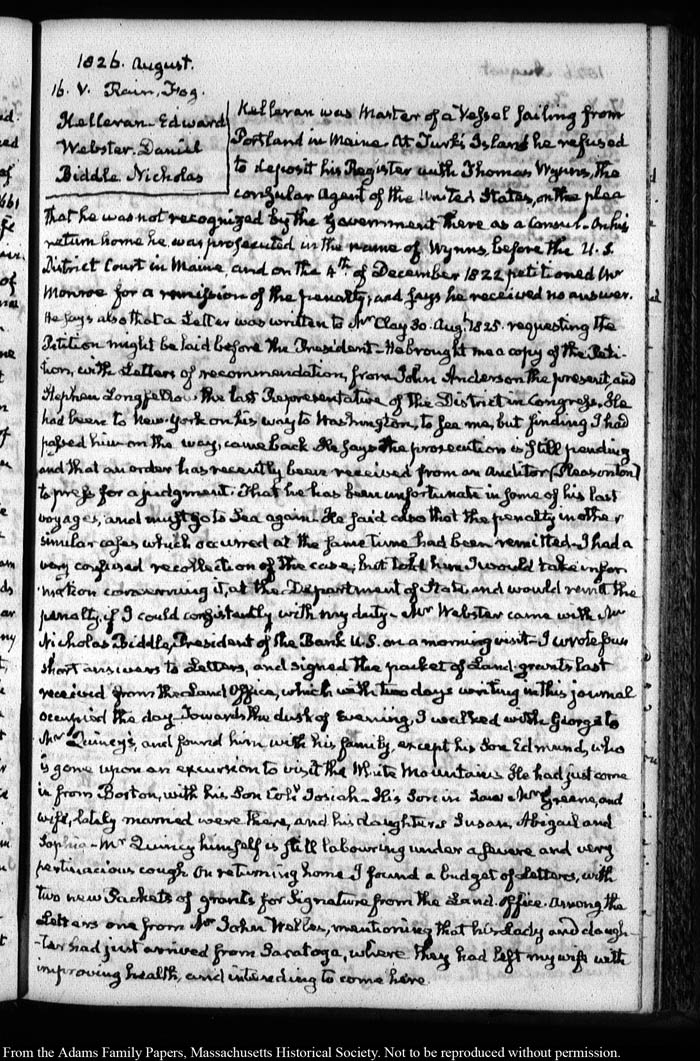 1826. August.
16. V. Rain, Fog.
Kelleran. Edward
Webster. Daniel
Biddle Nicholas
Kelleran was Master of a Vessel sailing from
Portland in Maine. At Turk's Island he refused
to deposit his Register with Thomas Wynns, the
consular agent of the United States, on the plea
that he was not recognized by the Government there as a Consul. On his
return home he was prosecuted in the name of Wynns, before the U.S.
District Court in Maine, and on the 4th of December 1822 petitioned Mr
Monroe for a remission of the penalty; and says he received no answer.
He says also that a Letter was written to Mr Clay 30. Augt 1825. requesting the
Petition might be laid before the President. He brought me a copy of the Peti-
tion, with Letters of recommendation, from John Anderson the present, and
Stephen Longfellow the last Representative of the District in Congress. He
had been to New-York on his way to Washington, to see me, but finding I had
passed him on the way, came back. He says the prosecution is still pending
and that an order has recently been received from an Auditor (Pleasonton)
to press for a judgment. That he has been unfortunate in some of his last
voyages, and must go to Sea again. He said also that the penalty in other
similar cases which occurred at the same time had been remitted. I had a
very confused recollection of the case, but told him I would take infor
mation concerning it, at the Department of State and would remit the
penalty, if I could consistently with my duty. Mr Webster came with Mr
Nicholas Biddle, President of the Bank U.S. on a morning visit. I wrote four
short answers to Letters, and signed the packet of Land-grants last
received from the Land Office, which with two days writing in this journal
occupied the day. Towards the dusk of Evening, I walked with George to
Mr Quincy's, and found him with his family, except his Son Edmund, who
is gone upon an excursion to visit the White Mountains. He had just come
in from Boston, with his Son Coll Josiah. His Son in Law Mr Greene, and
wife, lately married were there, and his daughters Susan, Abigail and
Sophia. Mr Quincy himself is still labouring under a severe and very
pertinacious cough. On returning home I found a budget of Letters, with
two new Packets of grants for Signature from the Land-Office. Among the
Letters one from Mr John Welles, mentioning that his Lady and daugh-
-ter had just arrived from Saratoga, where they had left my wife with
improving health, and intending to come here.
From the Adams Family Papers, Massachusetts Historical Society. Not to be reproduced without permission.